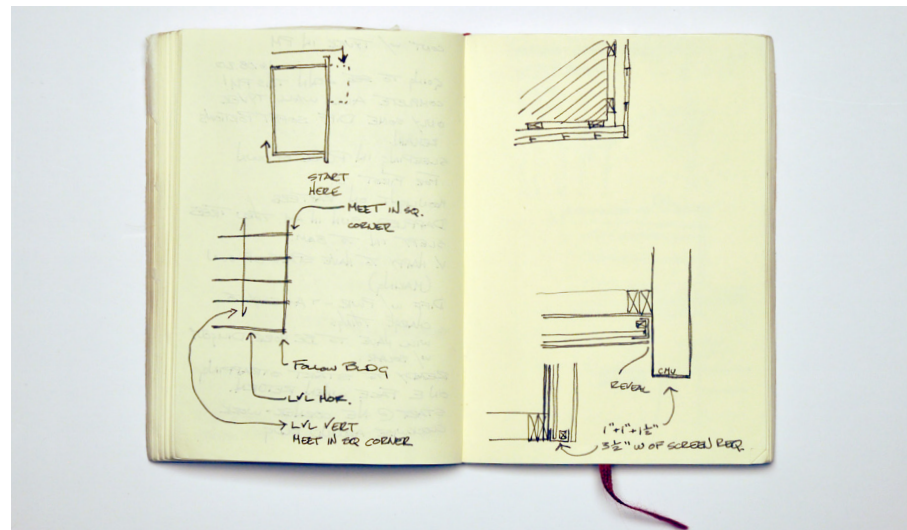 START
HERE
MEET IN SQ.
CORNER
FOLLOW BLDG
LVL HOR.
LVL VERT
MEET IN SQ CORNER
REVEAL
CMU
1"+1"+1½"
3½" W OF SCREEN REQ.